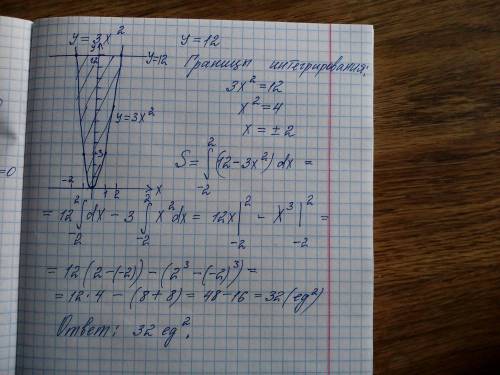 y = 3x² y = 12
y
12 y=12
Границы интегрирования:
3x² = 12
x² = 4
y=3x²
x = ± 2
3
S = ∫₋₂² (12 - 3x²) dx =
-2 1 2 x
= 12 ∫₋₂² dx - 3 ∫₋₂² x² dx = 12x |₋₂² - x³ |₋₂² =
= 12 (2 - (-2)) - (2³ - (-2)³) =
= 12 · 4 - (8 + 8) = 48 - 16 = 32 (ед²)
Ответ: 32 ед².
=0